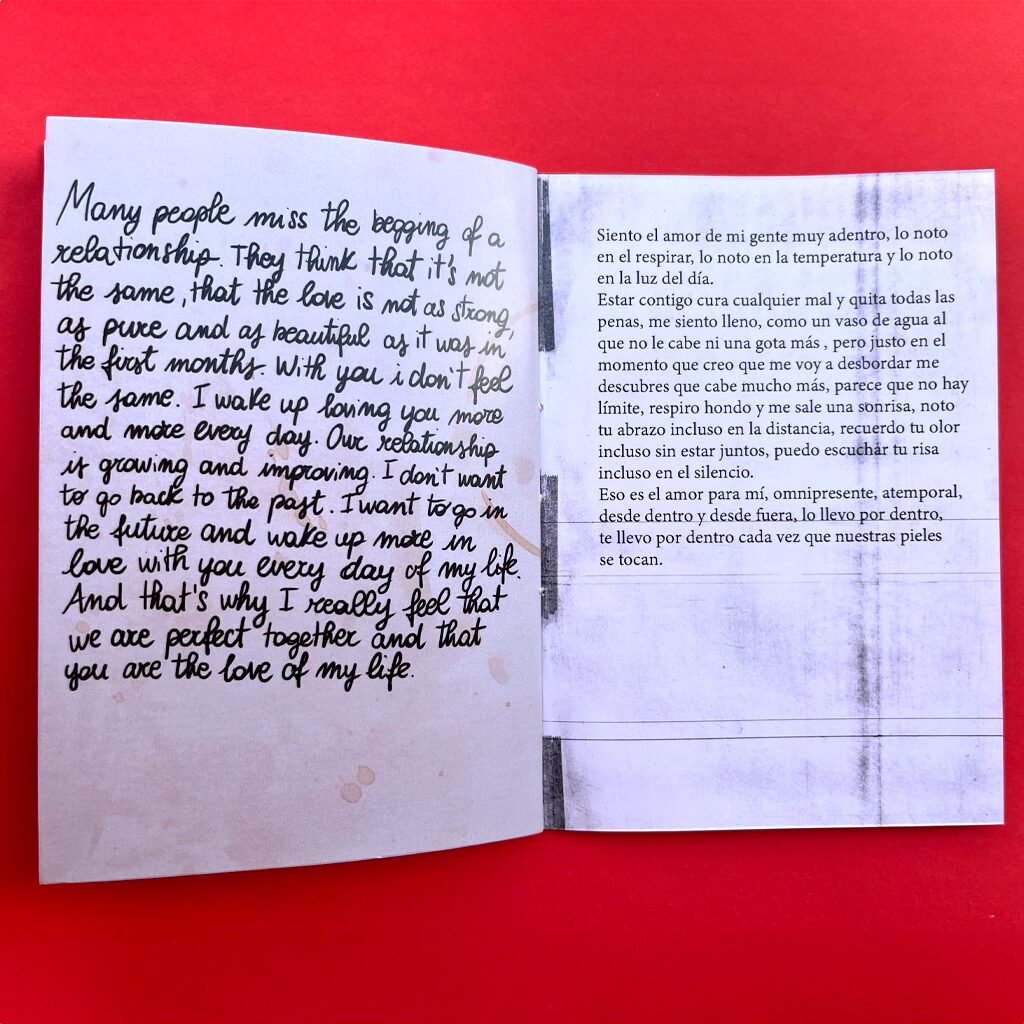 Many people miss the begging of a
relationship. They think that it's not
the same, that the love is not as strong,
as pure and as beautiful as it was in
the first months. With you i don't feel
the same. I wake up loving you more
and more every day. Our relationship
is growing and improving. I don't want
to go back to the past. I want to go in
the future and wake up more in
love with you every day of my life.
And that's why I really feel that
we are perfect together and that
you are the love of my life.
Siento el amor de mi gente muy adentro, lo noto
en el respirar, lo noto en la temperatura y lo noto
en la luz del día.
Estar contigo cura cualquier mal y quita todas las
penas, me siento lleno, como un vaso de agua al
que no le cabe ni una gota más , pero justo en el
momento que creo que me voy a desbordar me
descubres que cabe mucho más, parece que no hay
límite, respiro hondo y me sale una sonrisa, noto
tu abrazo incluso en la distancia, recuerdo tu olor
incluso sin estar juntos, puedo escuchar tu risa
incluso en el silencio.
Eso es el amor para mí, omnipresente, atemporal,
desde dentro y desde fuera, lo llevo por dentro,
te llevo por dentro cada vez que nuestras pieles
se tocan.